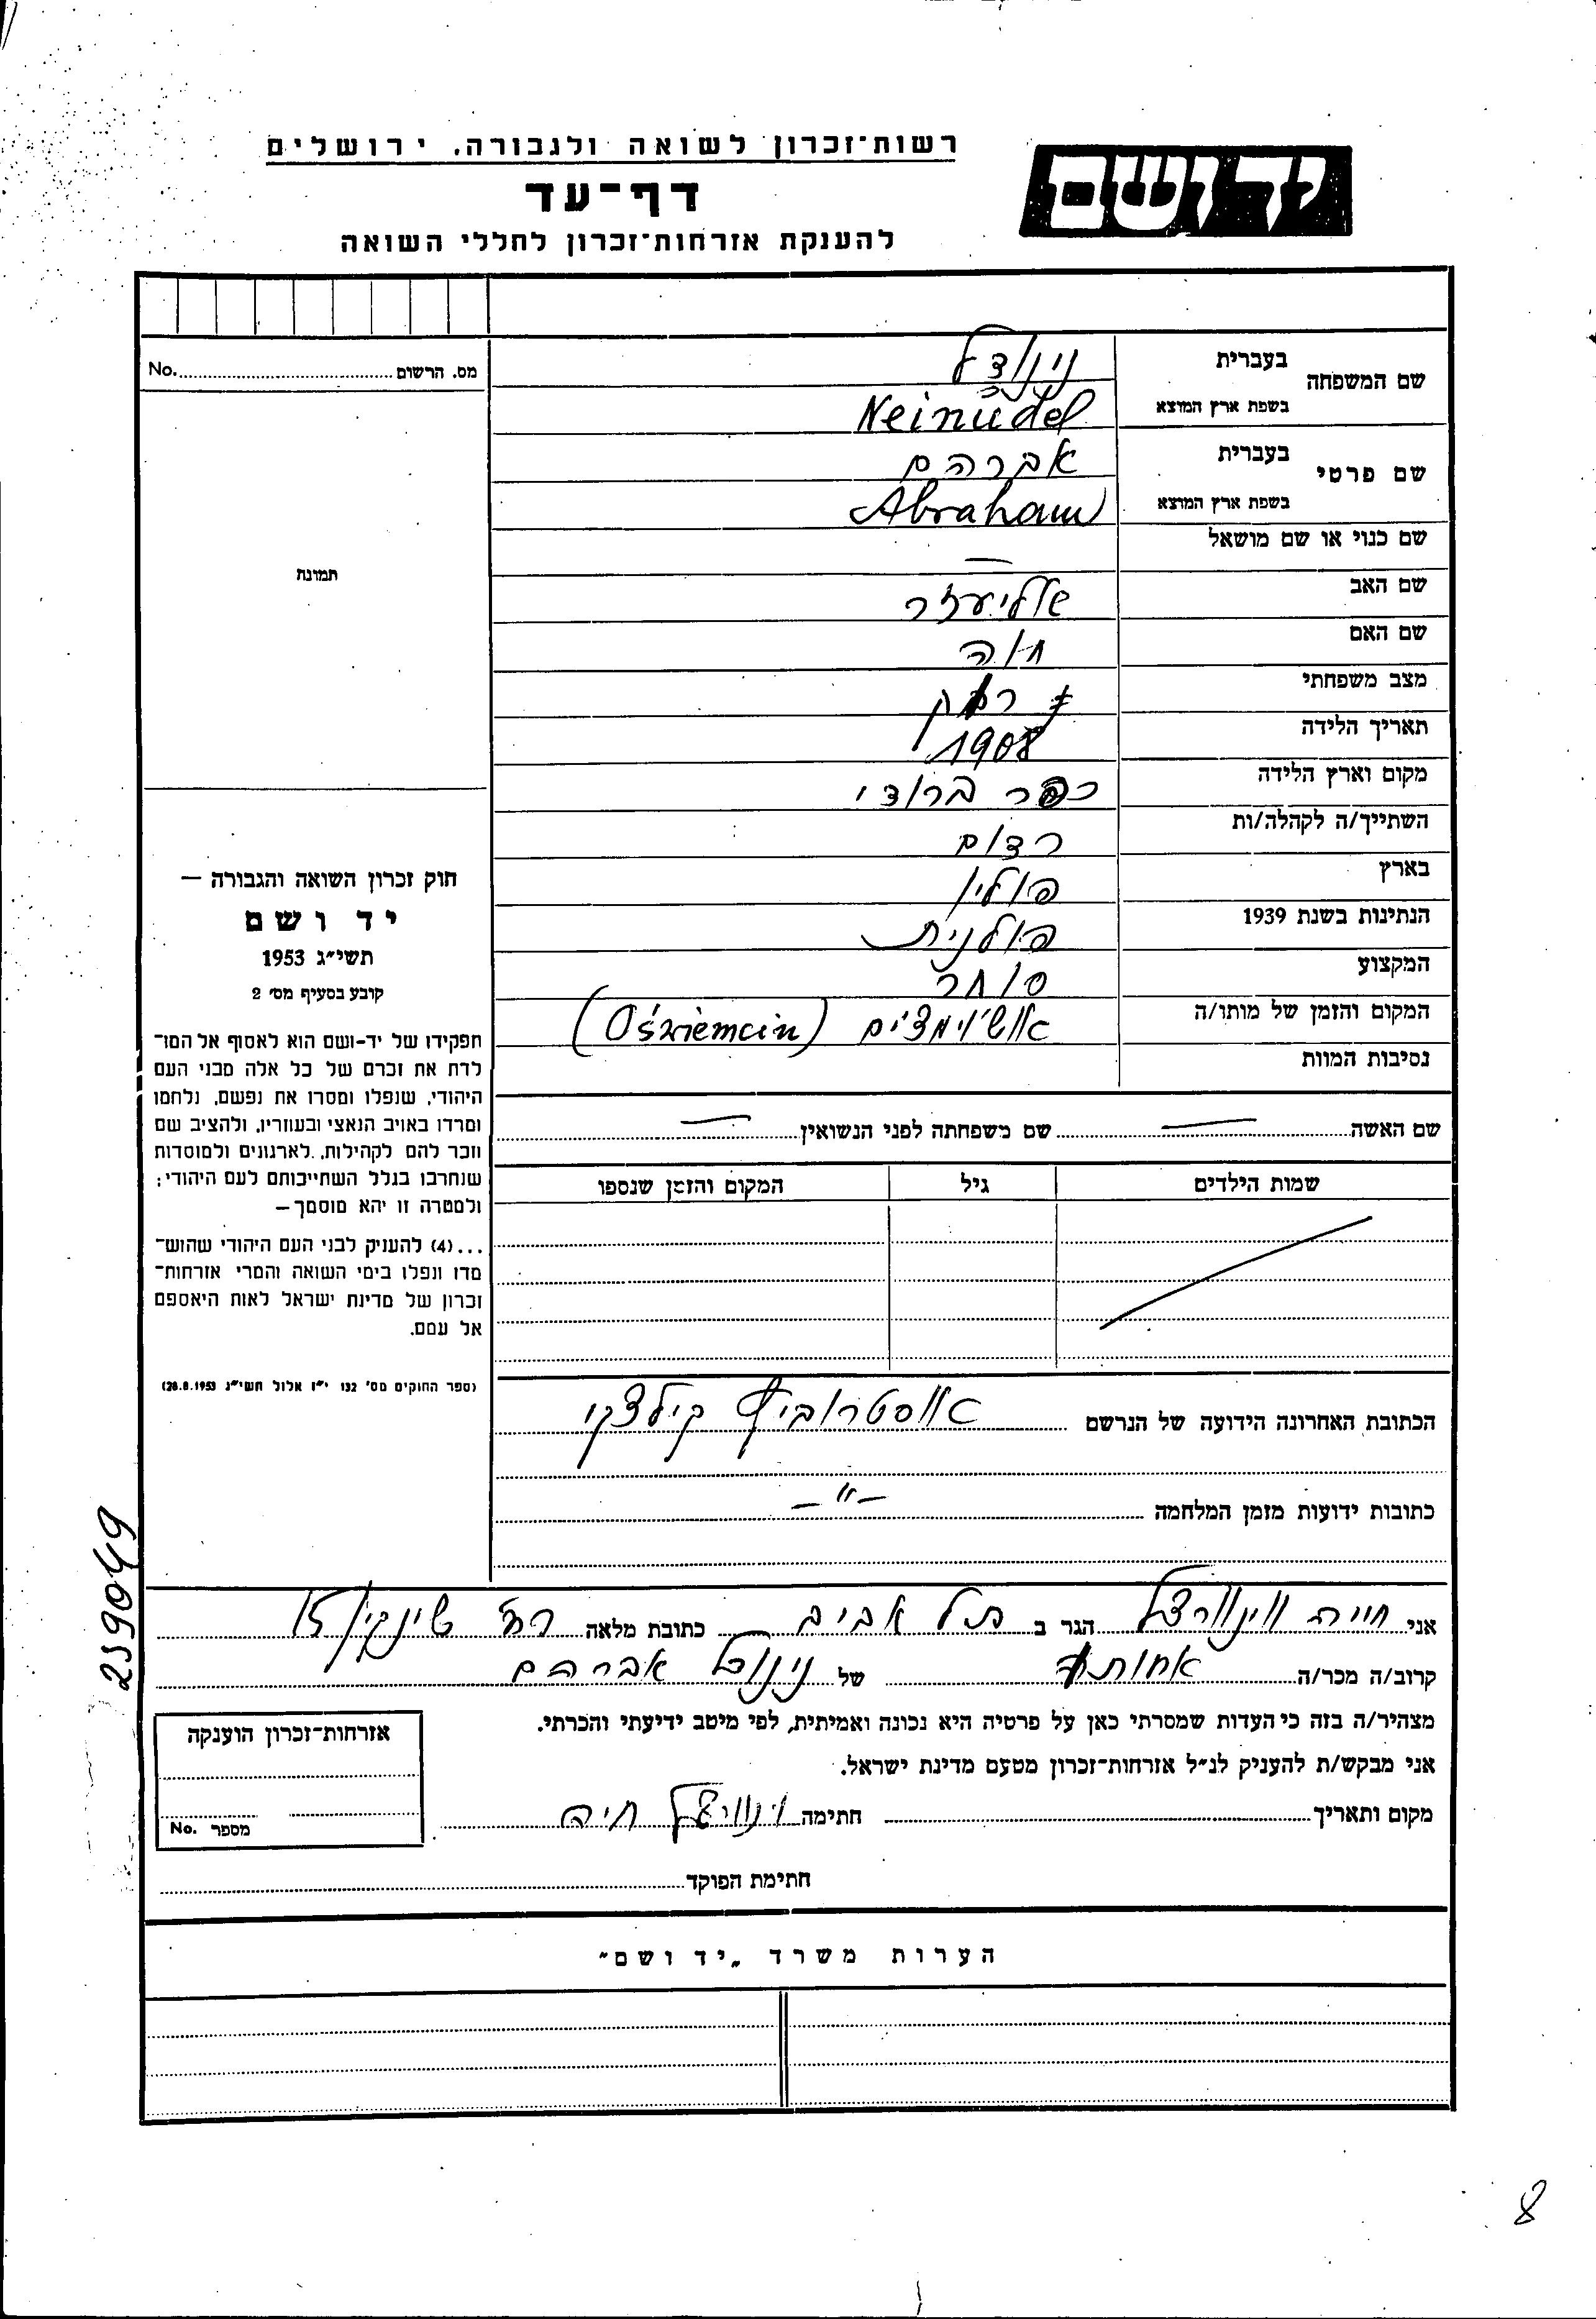 רשות־זכרון לשואה ולגבורה, ירושלים
יד ושם
דף־עד
להענקת אזרחות־זכרון לחללי השואה
מס. הרשום No.
תמונה
שם המשפחה
בעברית
בשפת ארץ המוצא Neinudel
שם פרטי
בעברית אברהם
בשפת ארץ המוצא Abraham
שם כנוי או שם מושאל —
שם האב אליעזר
שם האם חוה
מצב משפחתי רווק
תאריך הלידה 1908
מקום וארץ הלידה כפר ברודי
השתייך/ה לקהלה/ות רדום
בארץ פולין
הנתינות בשנת 1939 פולנית
המקצוע סוחר
המקום והזמן של מותו/ה
נסיבות המוות
שם האשה — שם משפחתה לפני הנשואין —
שמות הילדים גיל המקום והזמן שנספו
הכתובת האחרונה הידועה של הנרשם
כתובות ידועות מזמן המלחמה — " —
חוק זכרון השואה והגבורה —
יד ושם
תשי״ג 1953
קובע בסעיף מס׳ 2
תפקידו של יד-ושם הוא לאסוף אל המו־
לדת את זכרם של כל אלה מבני העם
היהודי, שנפלו ומסרו את נפשם, נלחמו
ומרדו באויב הנאצי ובעוזריו, ולהציב שם
וזכר להם לקהילות, לארגונים ולמוסדות
שנחרבו בגלל השתייכותם לעם היהודי;
ולמטרה זו יהא מוסמך —
...(4) להעניק לבני העם היהודי שהוש־
מדו ונפלו בימי השואה והמרי אזרחות־
זכרון של מדינת ישראל לאות היאספם
אל עמם.
(ספר החוקים מס׳ 132 י״ז אלול תשי״ג 28.8.1953)
259049
אני חיה הגר ב תל אביב כתובת מלאה רח׳ שינקין 15
קרוב/ה מכר/ה של אברהם
מצהיר/ה בזה כי העדות שמסרתי כאן על פרטיה היא נכונה ואמיתית, לפי מיטב ידיעתי והכרתי.
אני מבקש/ת להעניק לנ״ל אזרחות־זכרון מטעם מדינת ישראל.
מקום ותאריך חתימה חיה
חתימת הפוקד
אזרחות־זכרון הוענקה
מספר No.
הערות משרד „יד ושם״
8